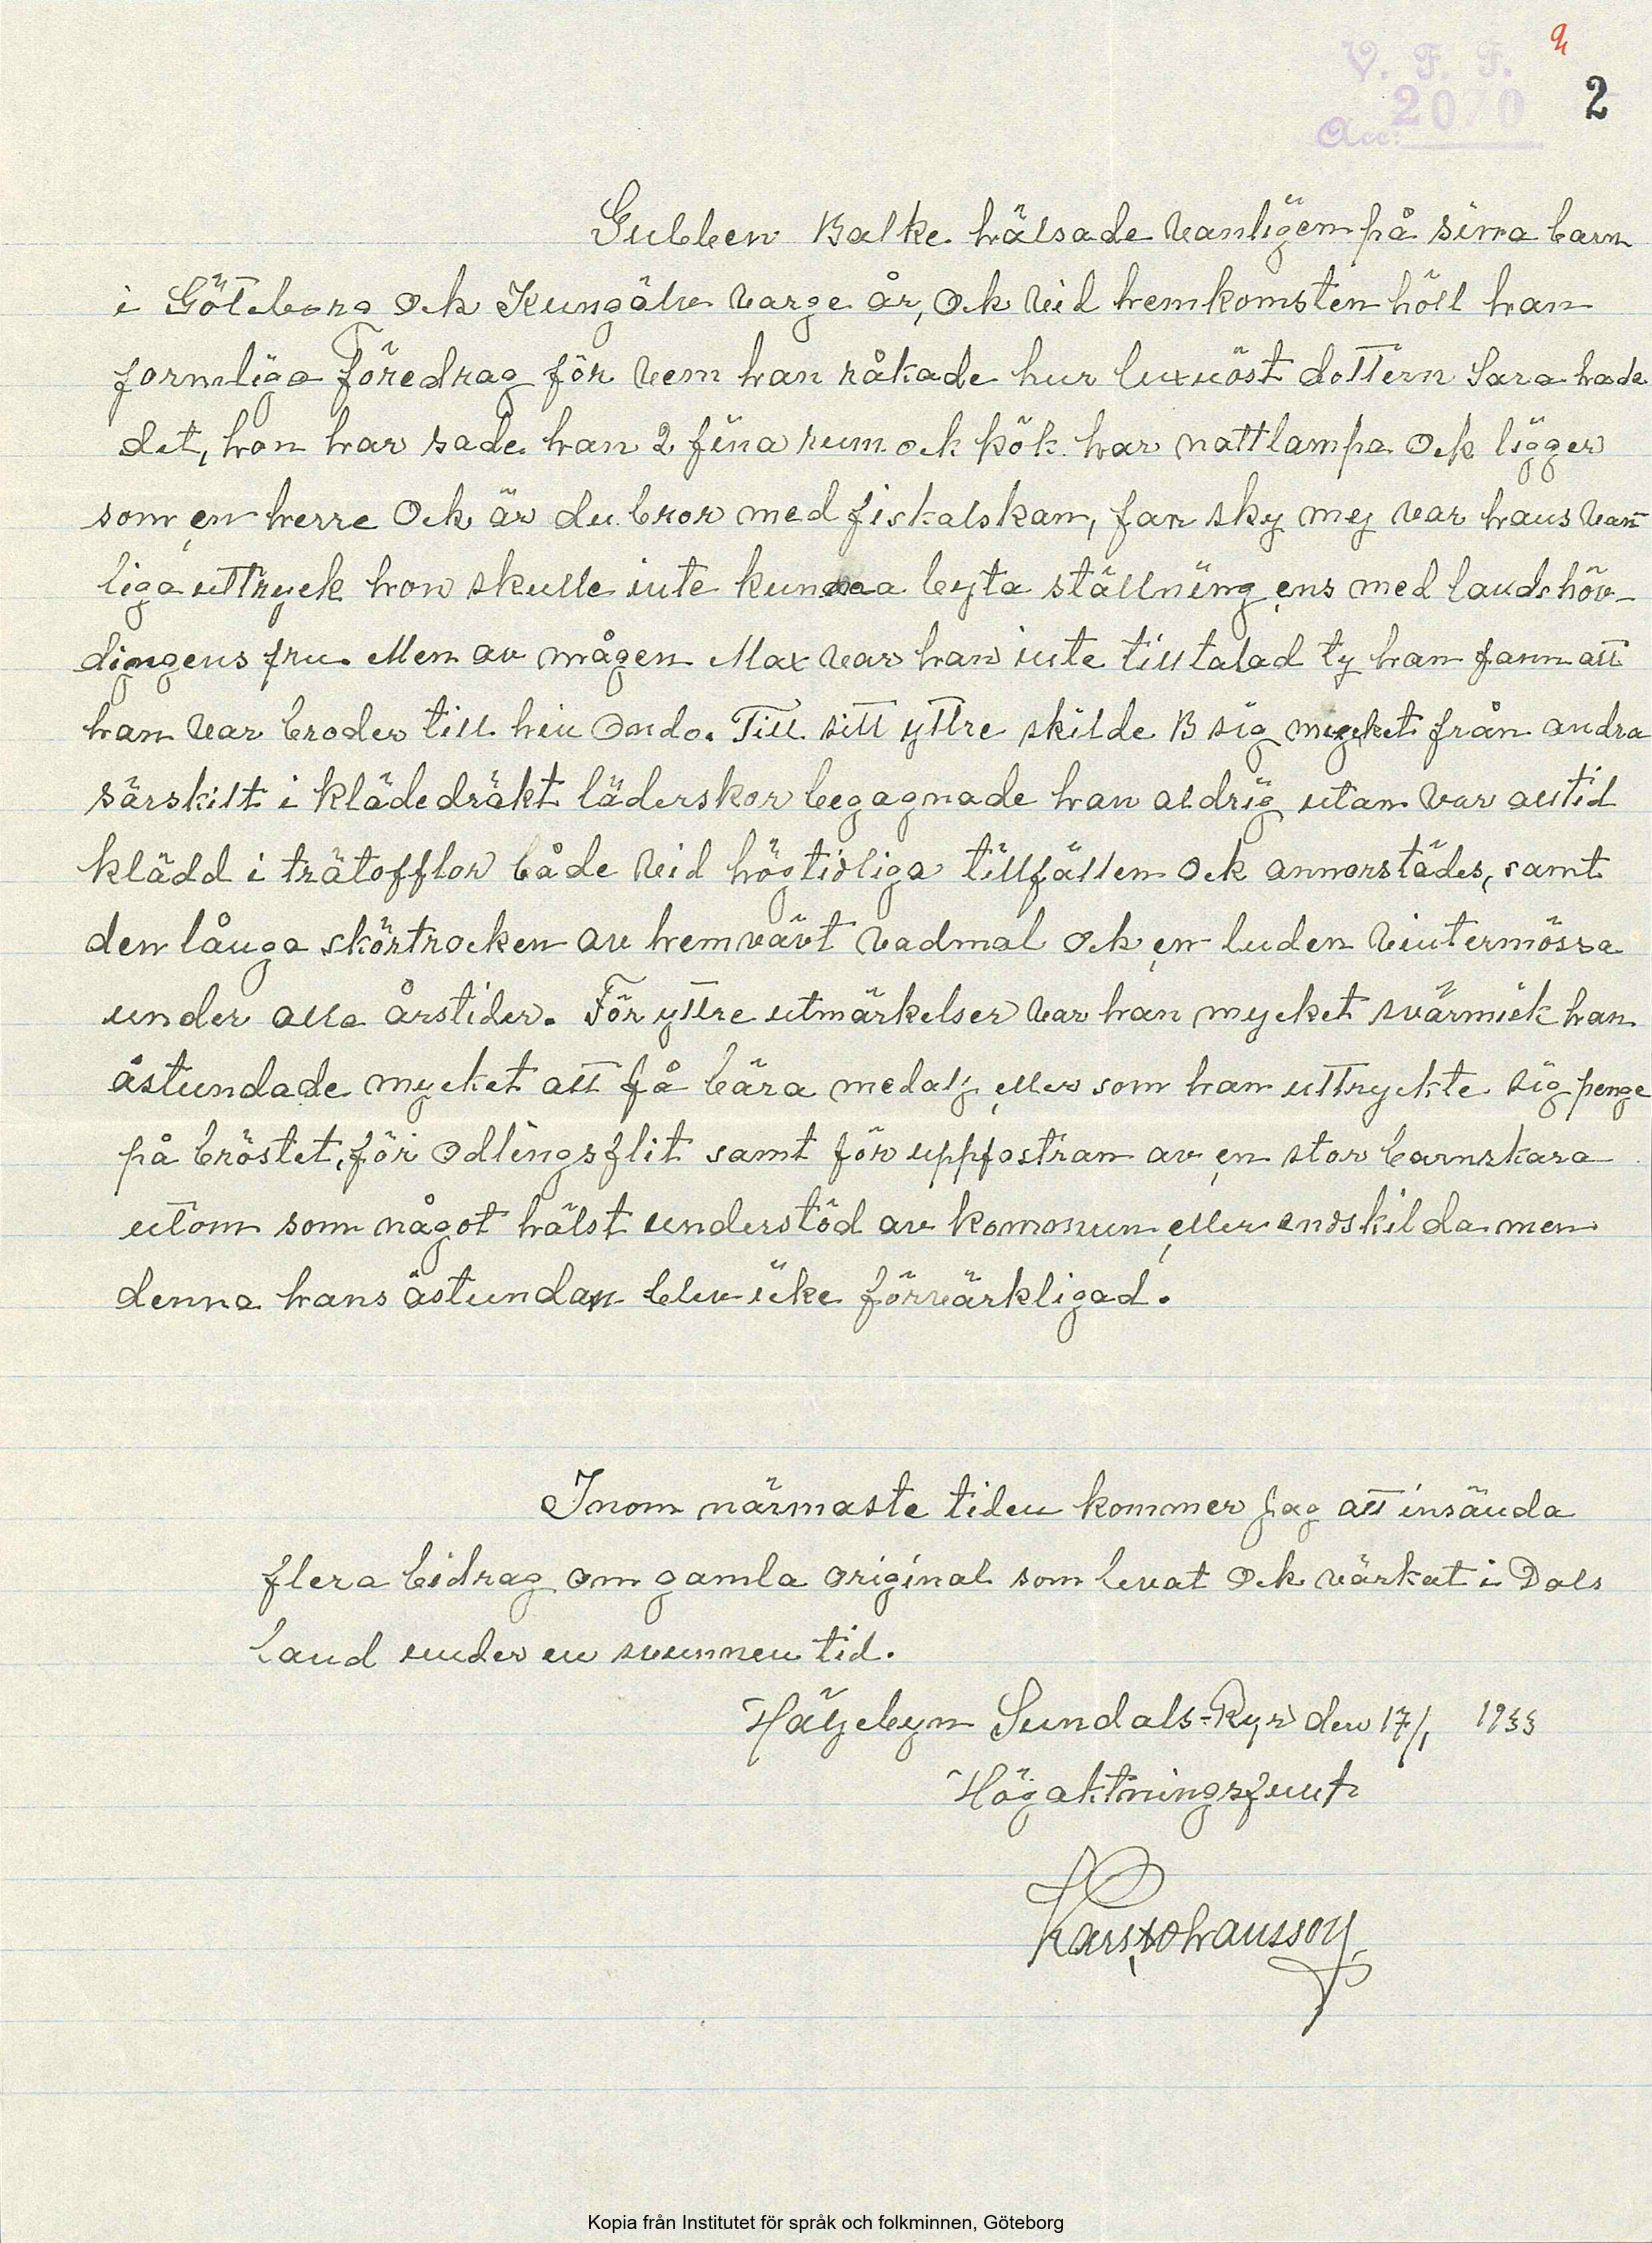 9
V. F. F.
Acc: 2070
2
Gubben Balke hälsade vanligen på sina barn
i Göteborg Ock Kungälv varge år, Ock vid hemkomsten höll han
formliga Föredrag för vem han råkade hur luxuöst dottern Sara hade
det, hon har sade han 2 fina rum ock kök har nattlampa Ock ligger
som en herre Ock är du bror med fiskalskan, fan sky mej var hans van
liga uttryck hon skulle inte kunna byta ställning ens med landshöv-
dingens fru. Men av mågen Max var han inte tilltalad ty han fann att
han var broder till hin Ondo. Till sitt yttre skilde B sig mycket från andra
särskilt i klädedräkt läderskor begagnade han aldrig utan var alltid
klädd i trätofflor både vid högtidliga tillfällen Ock annorstädes, samt
den långa skörtrocken av hemvävt vadmal Ock en luden vintermössa
under alla årstider. För yttre utmärkelser var han mycket svärmisk han
åstundade mycket att få bära medalj eller som han uttryckte sig penge
på bröstet, för Odlingsflit samt för uppfostran av en stor barnskara
utom som något hälst understöd av kommun eller endskilda men
denna hans åstundan blev icke förvärkligad.
Inom närmaste tiden kommer Jag att insända
flera bidrag om gamla original som levat Ock värkat i Dals
land under en svunnen tid.
Hätzebyn Sundals-Ryr den 17/1 1933
Högaktningsfullt
Karl Johansson
Kopia från Institutet för språk och folkminnen, Göteborg